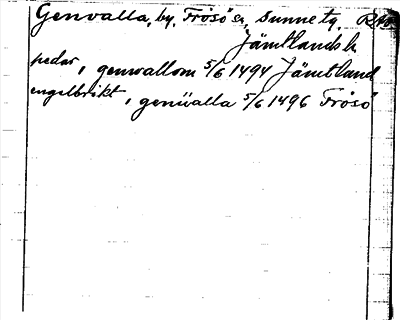 Genvalla, by, Frösö sn, Sunne tg.
Jämtlands l.
pedar, genwallom 5/6 1494 Jämtland
engelbrikt, genüalla 5/6 1496 Frösö